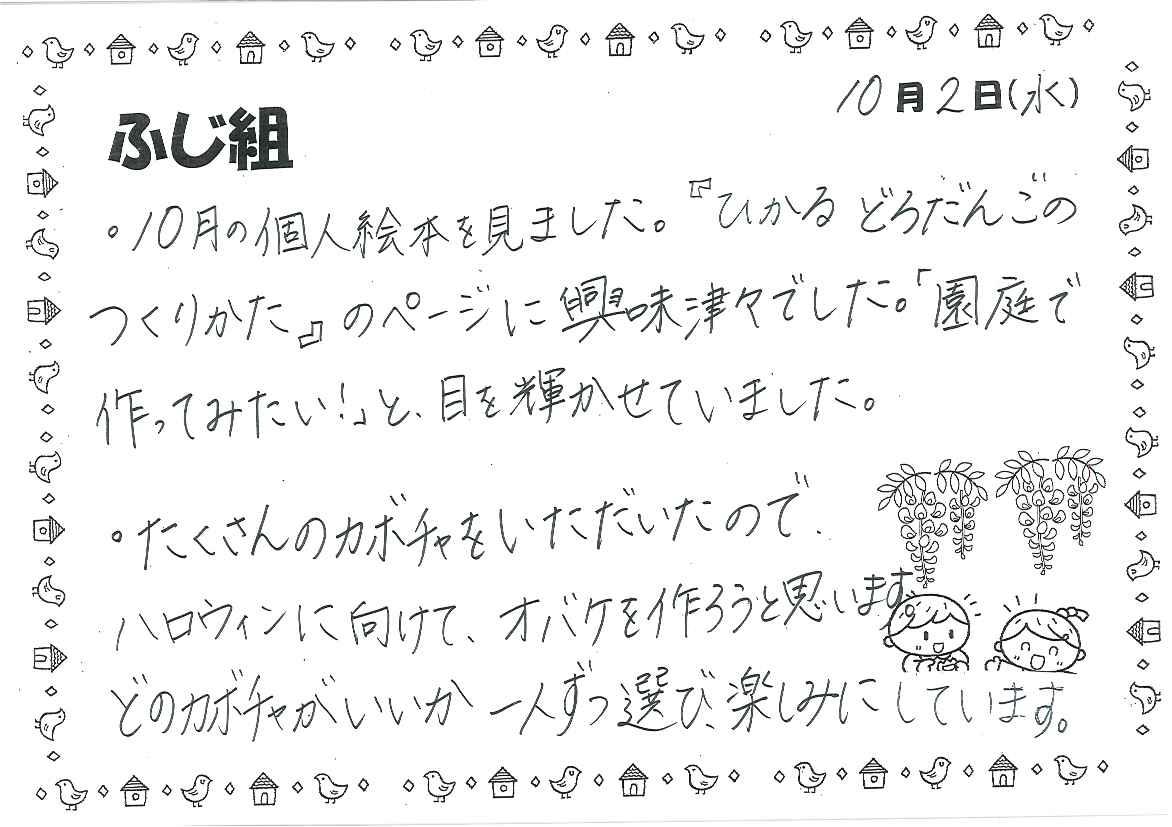 10月2日(水)
ふじ組
・10月の個人絵本を見ました。『ひかる どろだんごの
つくりかた』のページに興味津々でした。「園庭で
作ってみたい!」と、目を輝かせていました。
・たくさんのカボチャをいただいたので、
ハロウィンに向けて、オバケを作ろうと思います。
どのカボチャがいいか一人ずつ選び、楽しみにしています。